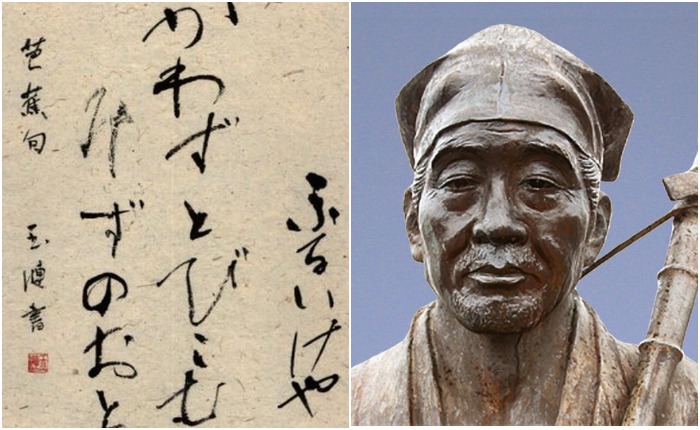 ふるいけや
かわずとびこむ
みずのおと
芭蕉句
書